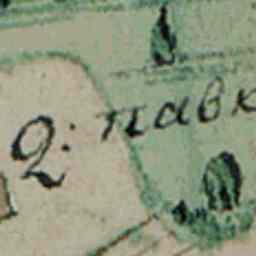 2: павк